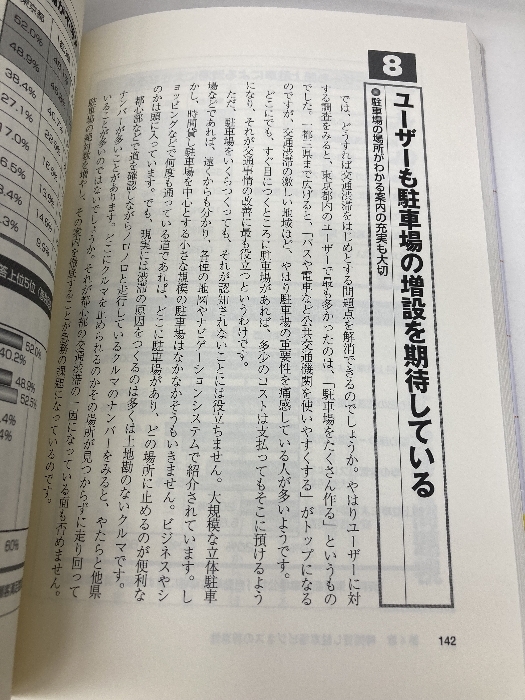 8
ユーザーも駐車場の増設を期待している
●駐車場の場所がわかる案内の充実も大切
では、どうすれば交通渋滞をはじめとする問題点を解消できるのでしょうか。やはりユーザーに対
する調査をみると、東京都内のユーザーで最も多かったのは、「駐車場をたくさん作る」というもの
でした。一都三県まで広げると、「バスや電車など公共交通機関を使いやすくする」がトップになる
のですが、交通渋滞の激しい地域ほど、やはり駐車場の重要性を痛感している人が多いようです。
どこにでも、すぐ目につくところに駐車場があれば、多少のコストは支払ってもそこに預けるよう
になり、それが交通事情の改善に最も役立つというわけです。
ただ、駐車場をいくらつくっても、それが認知されないことには役立ちません。大規模な立体駐車
場などであれば、遠くからも分かり、各種の地図やナビゲーションシステムで紹介されています。し
かし、時間貸し駐車場を中心とする小さな規模の駐車場はなかなかそうもいきません。ビジネスやシ
ョッピングなどで何度も通っている道であれば、どこに駐車場があり、どの場所に止めるのが便利な
のかは頭に入っています。でも、現実には渋滞の原因をつくるのは多くは土地勘のないクルマです。
都心部などで道を確認しながらノロノロと走行しているクルマのナンバーをみると、やたらと他県
ナンバーが多いことがあります。どこにクルマを止められるのかその場所が見つからずに走り回って
いることが多いのではないでしょうか。それが都心部の交通渋滞の一因になっている面も否めません。
駐車場の絶対数を増やし、その案内を徹底することが急務の課題になっているのです。
142
東京都
52.0%
48.9%
38.4%
27.1%
17.0%
16.5%
答上位5位
52.0%
40.2%
48.9%
52.5%
60%